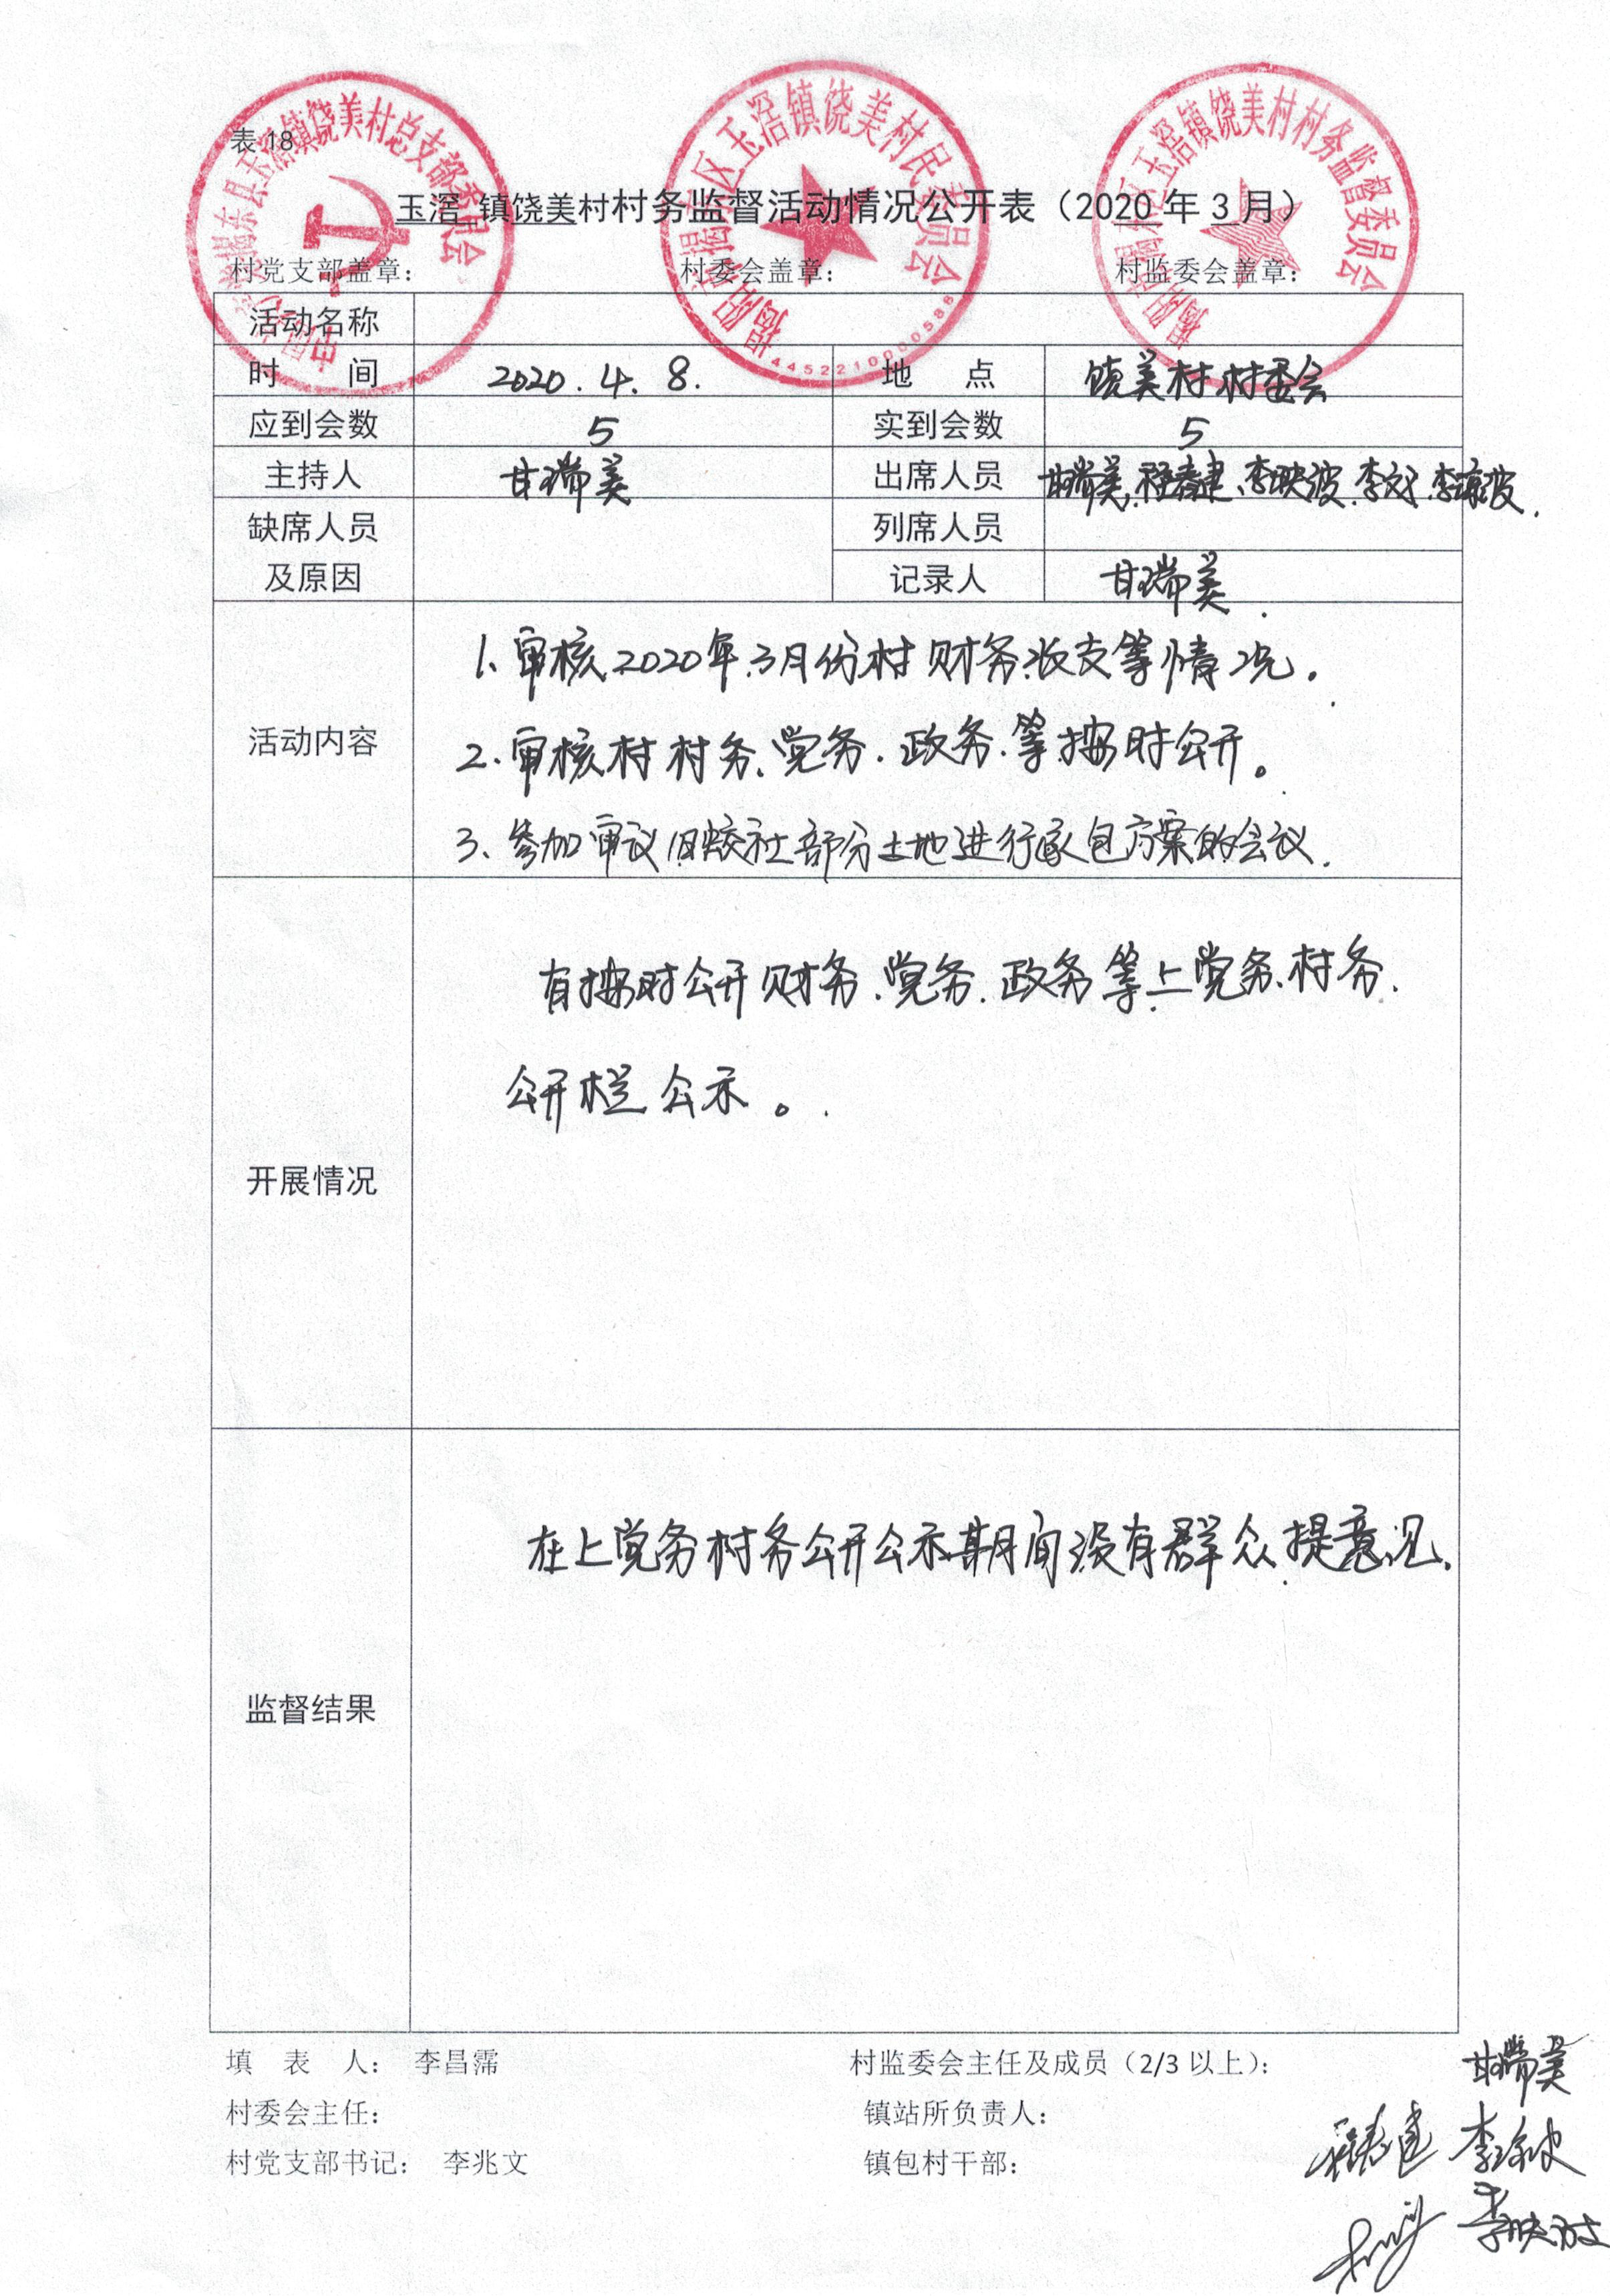 表 18
玉滘 镇饶美村村务监督活动情况公开表（2020 年 3 月）
村党支部盖章： 村委会盖章： 村监委会盖章：
玉滘镇饶美村总支部委员会
区玉滘镇饶美村民委员会
4452210000588
玉滘镇饶美村村务监督委员会
活动名称
时 间 2020.4.8. 地 点 饶美村村委会
应到会数 5 实到会数 5
主持人 甘瑞美 出席人员 甘瑞美、程春建、李映波、李琼波.
缺席人员 列席人员
及原因 记录人 甘瑞美
活动内容
1、审核2020年3月份村财务收支等情况。
2、审核村村务、党务、政务、等按时公开。
3、参加审议旧蛟社部分土地进行承包方案的会议.
开展情况
有按时公开财务、党务、政务等上党务、村务、
公开栏公示。
监督结果
在上党务村务公开公示期间没有群众提意见.
填 表 人： 李昌霈 村监委会主任及成员（2/3 以上）： 甘瑞美
村委会主任： 镇站所负责人：
程春建 李琼波
村党支部书记： 李兆文 镇包村干部：
李映波